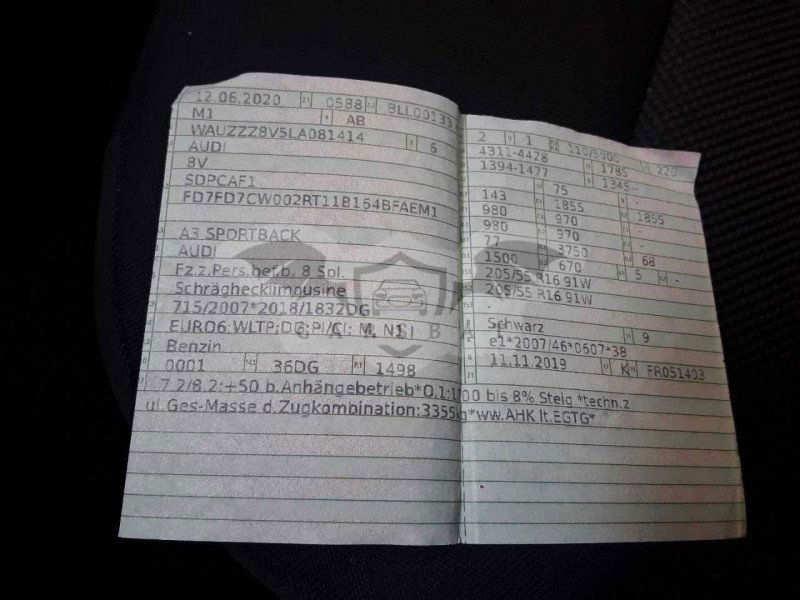 12.06.2020 2.1 0588 2.2 BLL00133
M1 4 AB
WAUZZZ8V5LA081414 3 5
AUDI
8V
SDPCAF1
FD7FD7CW002RT11B154BFAEM1
A3 SPORTBACK
AUDI
Fz.z.Pers.bef.b. 8 Spl.
Schräghecklimousine
715/2007*2018/1832DG
EURO6;WLTP;DG;PI/CI; M, N1 I
Benzin
0001 36DG 1498
2 1 110/5000 220
4311-4428 1785
1394-1477 1345--
75
143 1855 1855
980 970 -
980 970 -
77 3750 68
1500 670 5 -
205/55 R16 91W
205/55 R16 91W
-
Schwarz 9
e1*2007/46*0607*38
11.11.2019 K FR051403
7.2/8.2:+50 b.Anhängebetrieb*O.1:1700 bis 8% Steig *techn.z
ul.Ges-Masse d.Zugkombination:3355kg*ww.AHK lt.EGTG*